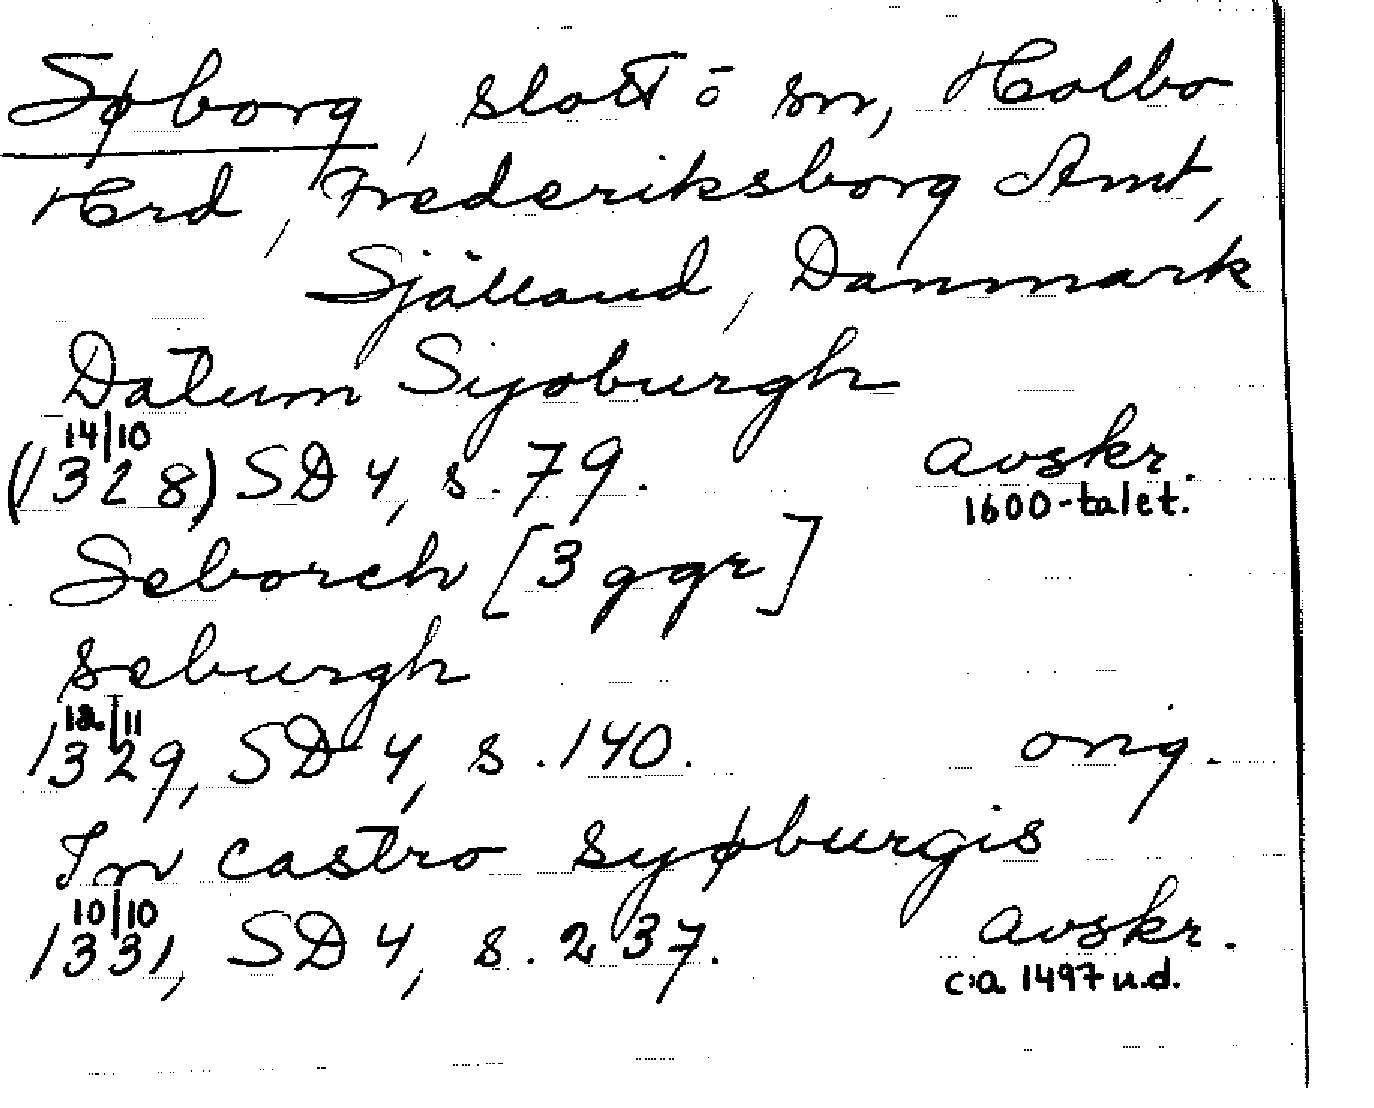 Søborg, slott ō sn, Holbo
Hrd, Frederiksborg Amt,
Själland, Danmark
Datum Syoburgh
14/10
(1328) SD 4, s. 79. avskr.
1600-talet.
Seborch [3 ggr]
seburgh
12/11
1329, SD 4, s. 140. orig.
In castro syøburgis
10/10
1331, SD 4, s. 237. avskr.
c:a 1497 u.d.